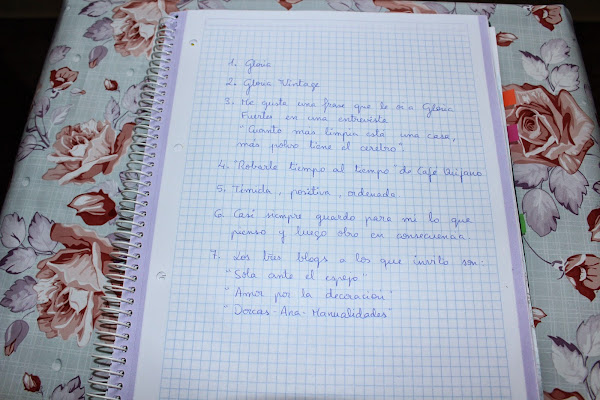 1. Gloria
2. Gloria Vintage
3. Me gusta una frase que le oí a Gloria
Fuertes en una entrevista
"Cuanto más limpia está una casa,
más polvo tiene el cerebro".
4. "Robarle tiempo al tiempo" de Café Quijano
5. Tímida, positiva, ordenada.
6. Casi siempre guardo para mi lo que
pienso y luego obro en consecuencia.
7. Los tres blogs a los que invito son:
"Sola ante el espejo"
"Amor por la decoración"
"Dorcas-Ana-Manualidades"